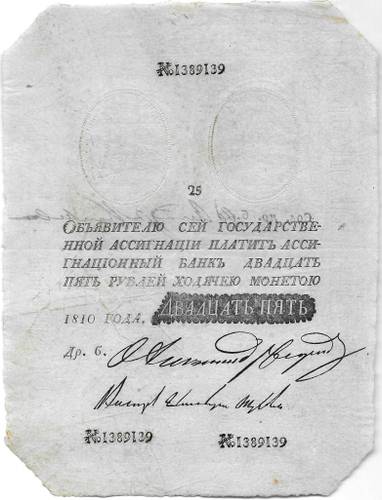 №1389139
25
ОБЪЯВИТЕЛЮ СЕЙ ГОСУДАРСТВЕ-
ННОЙ АССИГНАЦІИ ПЛАТИТЪ АССИ-
ГНАЦІОННЫЙ БАНКЪ ДВАДЦАТЬ
ПЯТЬ РУБЛЕЙ ХОДЯЧЕЮ МОНЕТОЮ
1810 ГОДА. ДВАДЦАТЬ ПЯТЬ
Др. б.
№1389139 №1389139